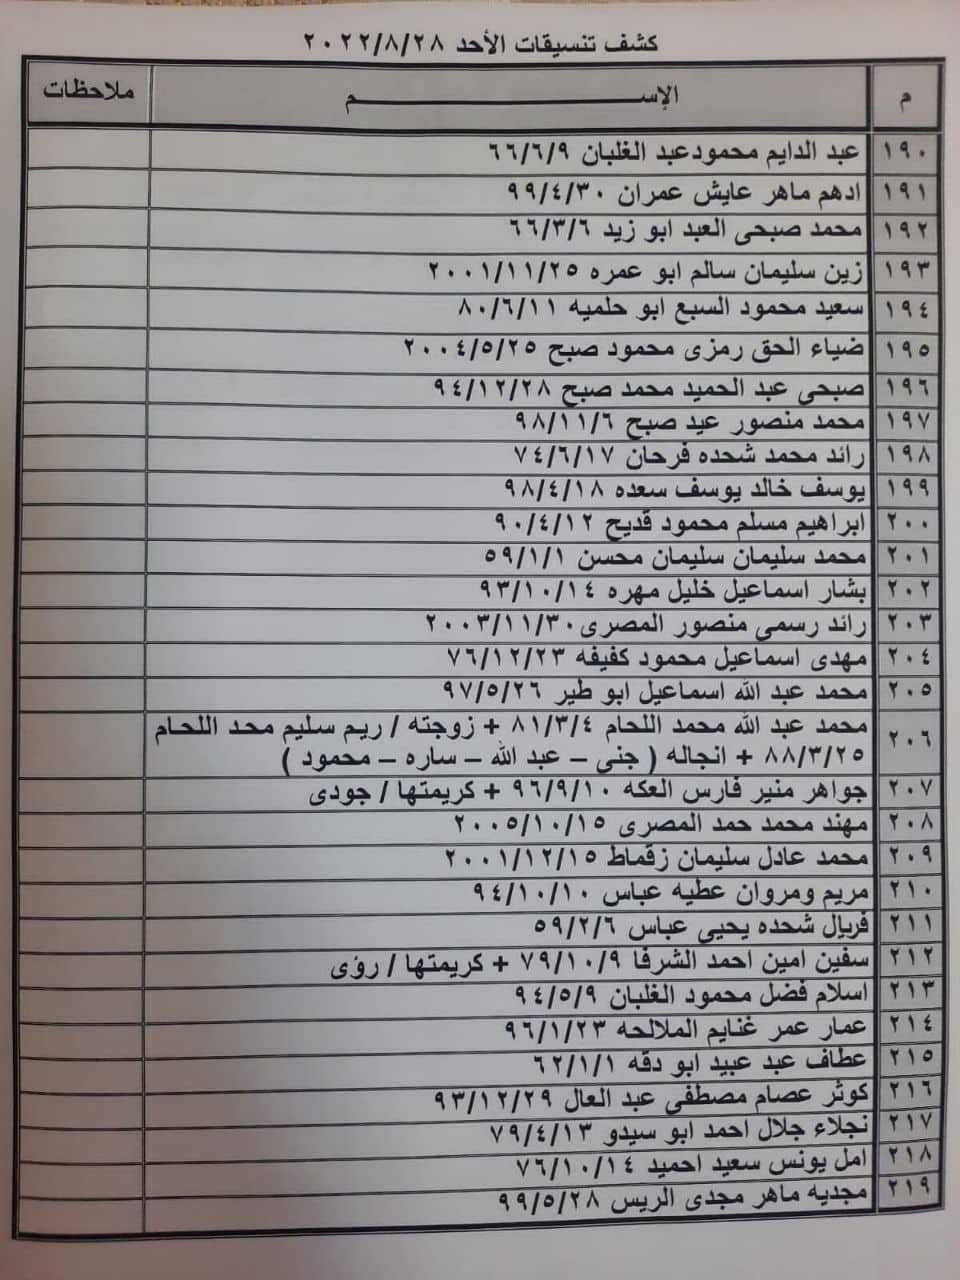 كشف تنسيقات الأحد ٢٠٢٢/٨/٢٨
م الإســـــم ملاحظات
١٩٠ عبد الدايم محمودعبد الغلبان ٦٦/٦/٩
١٩١ ادهم ماهر عايش عمران ٩٩/٤/٣٠
١٩٢ محمد صبحى العبد ابو زيد ٦٦/٣/٦
١٩٣ زين سليمان سالم ابو عمره ٢٠٠١/١١/٢٥
١٩٤ سعيد محمود السبع ابو حلميه ٨٠/٦/١١
١٩٥ ضياء الحق رمزى محمود صبح ٢٠٠٤/٥/٢٥
١٩٦ صبحي عبد الحميد محمد صبح ٩٤/١٢/٢٨
١٩٧ محمد منصور عيد صبح ٩٨/١١/٦
١٩٨ رائد محمد شحده فرحان ٧٤/٦/١٧
١٩٩ يوسف خالد يوسف سعده ٩٨/٤/١٨
٢٠٠ ابراهيم مسلم محمود قديح ٩٠/٤/١٢
٢٠١ محمد سليمان سليمان محسن ٥٩/١/١
٢٠٢ بشار اسماعيل خليل مهره ٩٣/١٠/١٤
٢٠٣ رائد رسمى منصور المصرى ٢٠٠٣/١١/٣٠
٢٠٤ مهدى اسماعيل محمود كفيفه ٧٦/١٢/٢٣
٢٠٥ محمد عبد الله اسماعيل ابو طير ٩٧/٥/٢٦
٢٠٦ محمد عبد الله محمد اللحام ٨١/٣/٤ + زوجته / ريم سليم محد اللحام
٨٨/٣/٢٥ + انجاله ( جنى – عبد الله – ساره – محمود )
٢٠٧ جواهر منير فارس العكه ٩٦/٩/١٠ + كريمتها / جودى
٢٠٨ مهند محمد حمد المصرى ٢٠٠٥/١٠/١٥
٢٠٩ محمد عادل سليمان زقماط ٢٠٠١/١٢/١٥
٢١٠ مريم ومروان عطيه عباس ٩٤/١٠/١٠
٢١١ فريال شحده يحيى عباس ٥٩/٢/٦
٢١٢ سفين امين احمد الشرفا ٧٩/١٠/٩ + كريمتها / رؤى
٢١٣ اسلام فضل محمود الغلبان ٩٤/٥/٩
٢١٤ عمار عمر غنايم الملالحه ٩٦/١/٢٣
٢١٥ عطاف عبد عبيد ابو دقه ٦٢/١/١
٢١٦ كوثر عصام مصطفى عبد العال ٩٣/١٢/٢٩
٢١٧ نجلاء جلال احمد ابو سيدو ٧٩/٤/١٣
٢١٨ امل يونس سعيد احميد ٧٦/١٠/١٤
٢١٩ مجديه ماهر مجدى الريس ٩٩/٥/٢٨